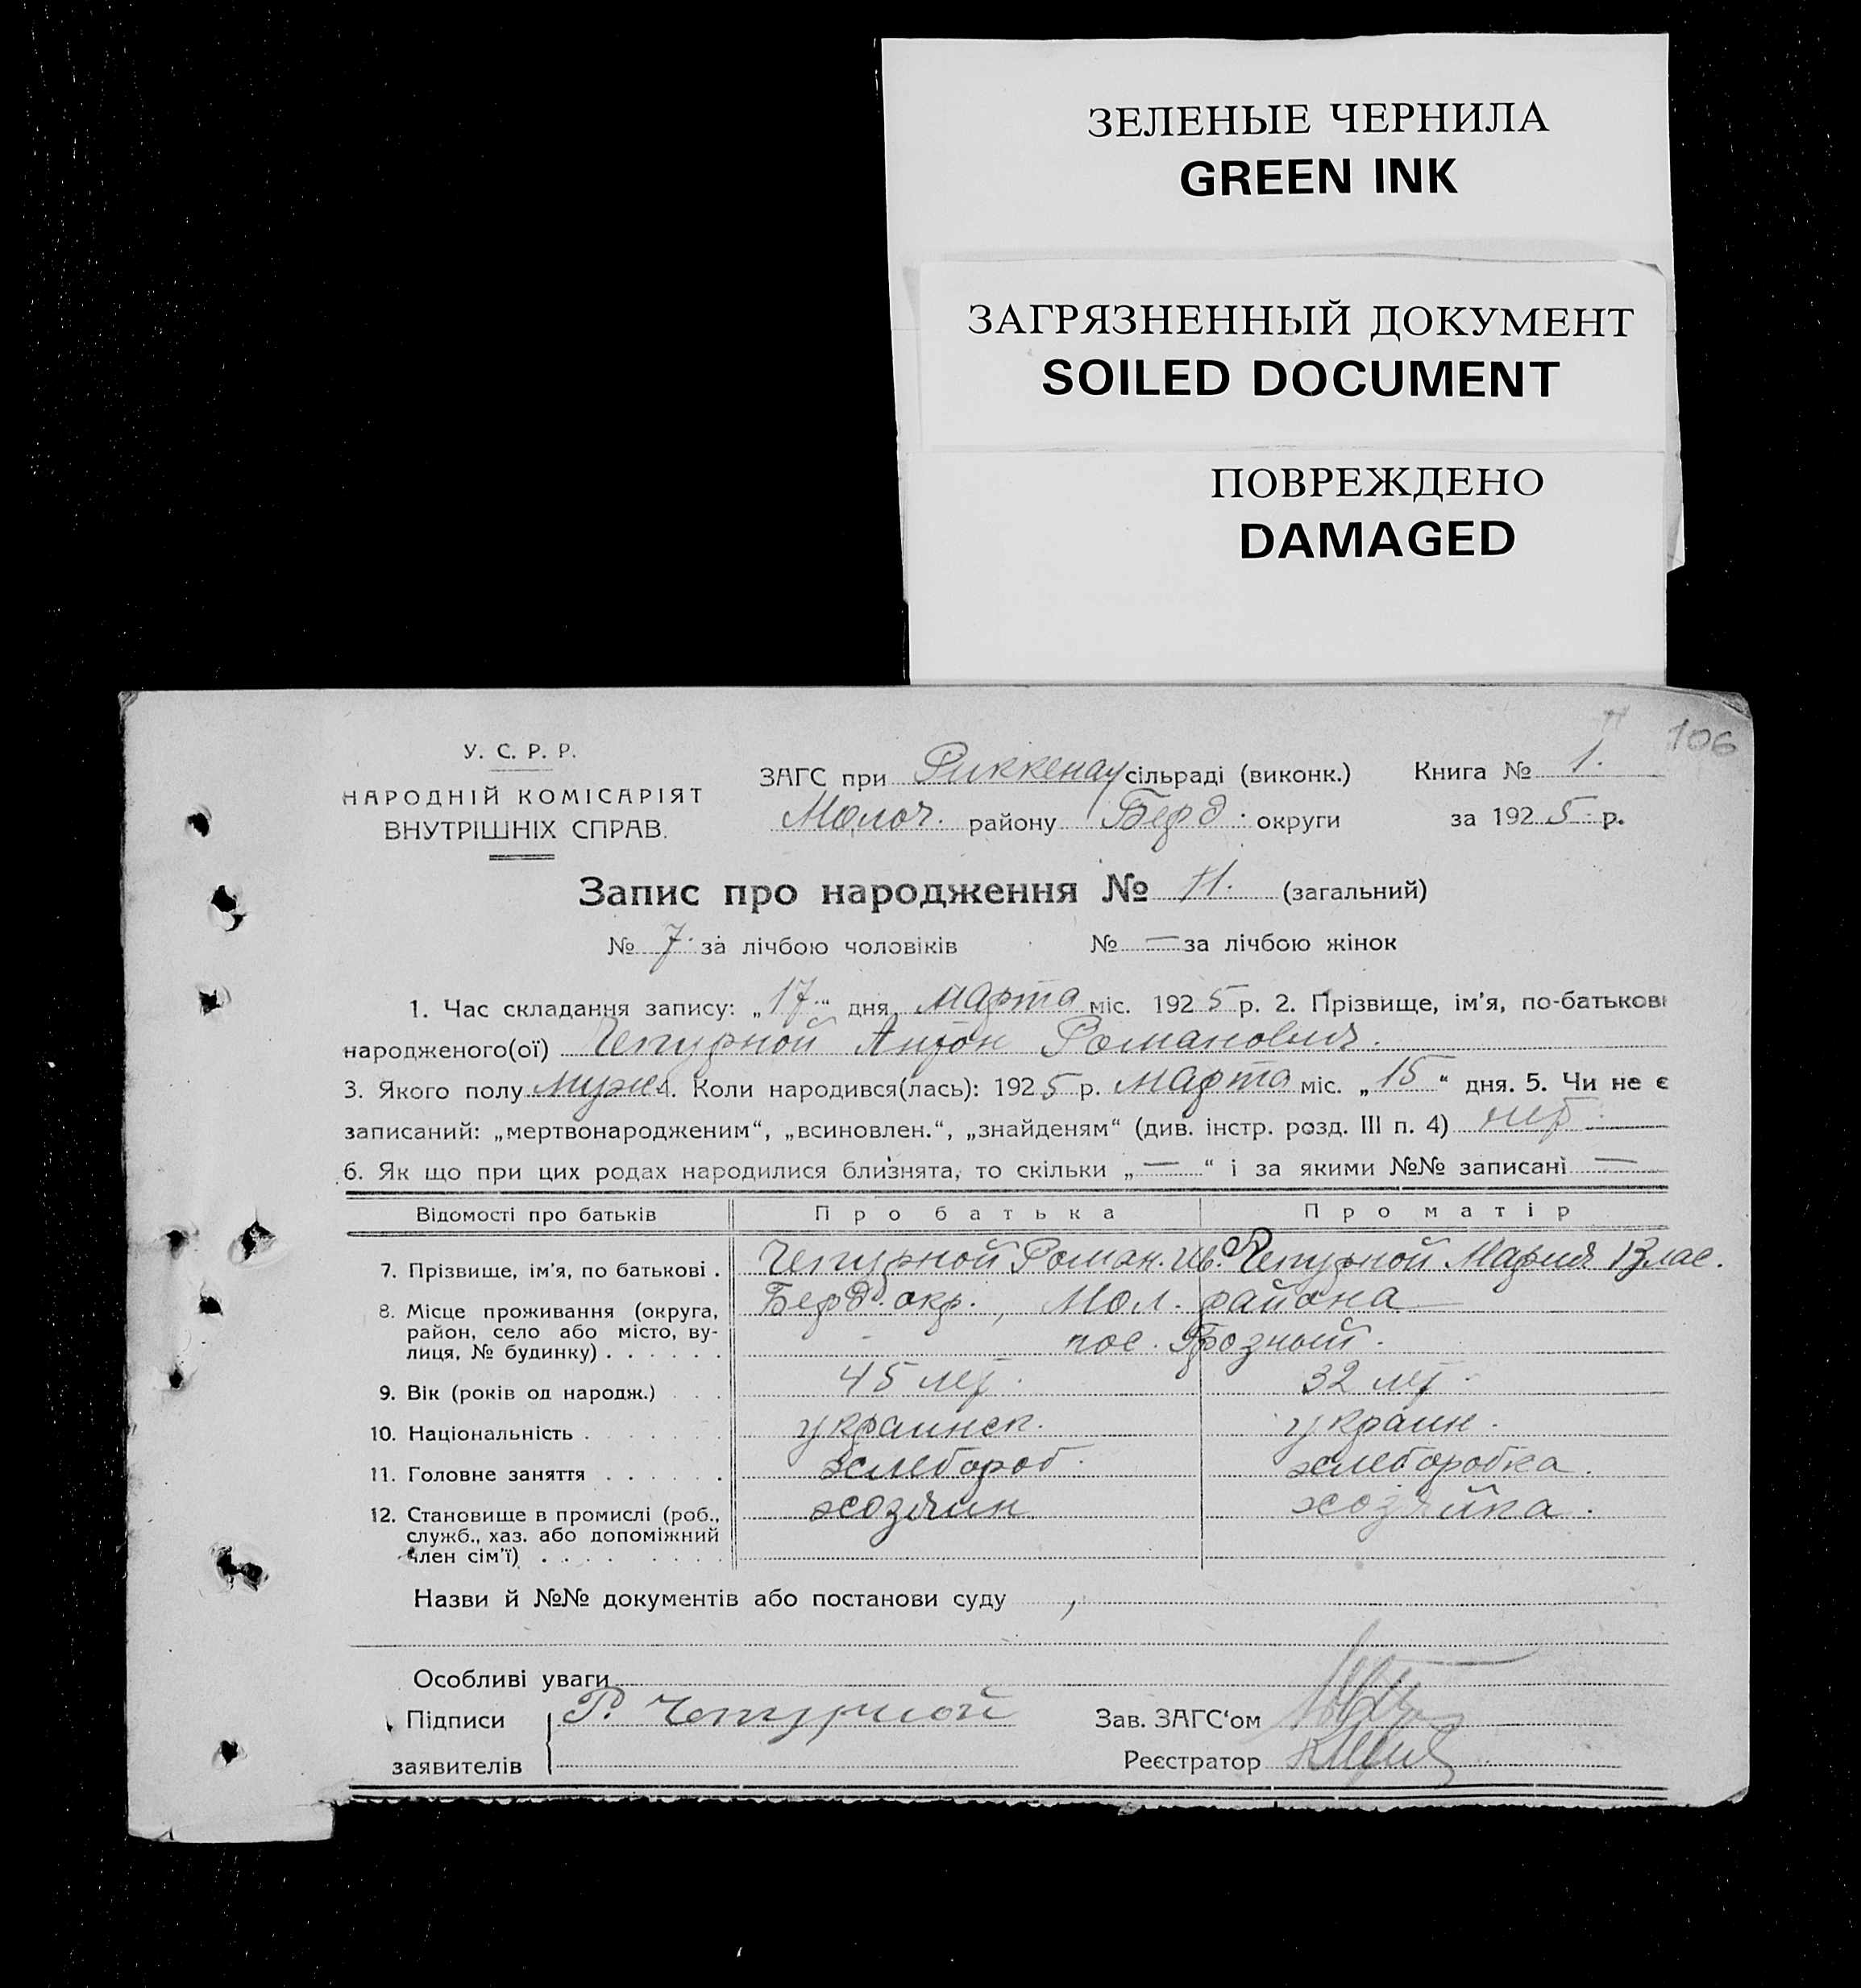 ЗЕЛЕНЫЕ ЧЕРНИЛА
GREEN INK
ЗАГРЯЗНЕННЫЙ ДОКУМЕНТ
SOILED DOCUMENT
ПОВРЕЖДЕНО
DAMAGED
106
У. С. Р. Р.
НАРОДНІЙ КОМІСАРІЯТ
ВНУТРІШНІХ СПРАВ.
ЗАГС при Риккенау сільраді (виконк.) Книга № 1.
Молоч. району Берд. округи за 1925 р.
Запис про народження № 11. (загальний)
№ 7. за лічбою чоловіків № — за лічбою жінок
1. Час складання запису: „17“ дня марта міс. 1925 р. 2. Прізвище, ім'я, по-батькові
народженого(ої) Чепурной Антон Романович.
3. Якого полу муж. 4. Коли народився(лась): 1925 р. марта міс. „15“ дня. 5. Чи не є
записаний: „мертвонародженим“, „всиновлен.“, „знайденям“ (див. інстр. розд. III п. 4) нет.
6. Як що при цих родах народилися близнята, то скільки „—“ і за якими №№ записані —
Відомості про батьків Про батька Про матір
7. Прізвище, ім'я, по батькові . Чепурной Роман. Ив. Чепурной Мария Влас.
8. Місце проживання (округа, Берд. окр., Мол. района
район, село або місто, ву-
лиця, № будинку) . . . . . . пос. Грозный.
9. Вік (років од народж.) . . . 45 лет. 32 лет.
10. Національність . . . . . . . украинск. украин.
11. Головне заняття . . . . . . хлебороб. хлеборобка.
12. Становище в промислі (роб., хозяин хозяйка.
служб., хаз. або допоміжний
член сім'ї) . . . . . . . .
Назви й №№ документів або постанови суду
Особливі уваги
Підписи Р. Чепурной Зав. ЗАГС'ом
заявителів Реєстратор